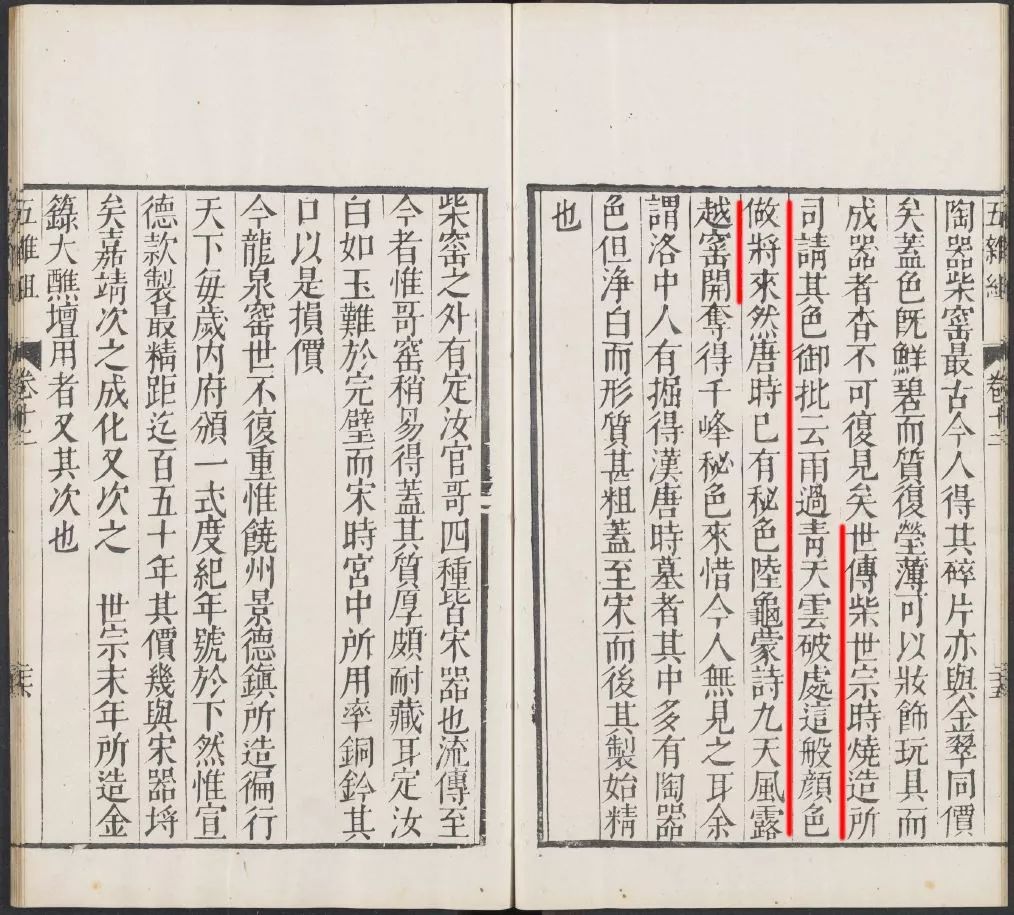 五雜組 卷十二 三十五
陶器柴窰最古今人得其碎片亦與金翠同價
矣蓋色旣鮮碧而質復瑩薄可以妝飾玩具而
成器者杳不可復見矣世傳柴世宗時燒造所
司請其色御批云雨過靑天雲破處這般顏色
做將來然唐時已有秘色陸龜蒙詩九天風露
越窰開奪得千峰秘色來惜今人無見之耳余
謂洛中人有掘得漢唐時墓者其中多有陶器
色但淨白而形質甚粗蓋至宋而後其製始精
也
柴窰之外有定汝官哥四種皆宋器也流傳至
今者惟哥窰稍易得蓋其質厚頗耐藏耳定汝
白如玉難於完璧而宋時宮中所用率銅鈐其
口以是損價
今龍泉窰世不復重惟饒州景德鎮所造徧行
天下每歲内府頒一式度紀年號於下然惟宣
德款製最精距迄百五十年其價幾與宋器埒
矣嘉靖次之成化又次之 世宗末年所造金
籙大醮壇用者又其次也
五雜組 卷十二